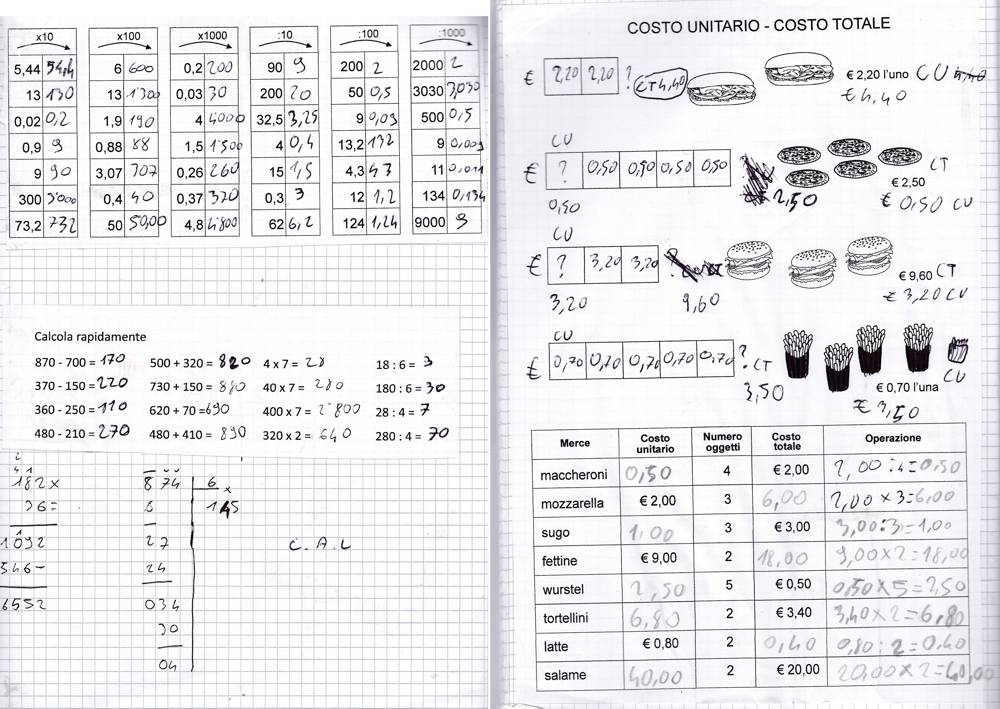 x10 x100 x1000 :10 :100 :1000
5,44 54,4 6 600 0,2 200 90 9 200 2 2000 2
13 130 13 1'300 0,03 30 200 20 50 0,5 3030 3,030
0,02 0,2 1,9 190 4 4000 32,5 3,25 9 0,09 500 0,5
0,9 9 0,88 88 1,5 1'500 4 0,4 13,2 132 9 0,009
9 90 3,07 307 0,26 260 15 1,5 4,3 43 11 0,011
300 3'000 0,4 40 0,37 370 0,3 3 12 1,2 134 0,134
73,2 732 50 50,00 4,8 4'800 62 6,2 124 1,24 9000 9
Calcola rapidamente
870 - 700 = 170 500 + 320 = 820 4 x 7 = 28 18 : 6 = 3
370 - 150 = 220 730 + 150 = 880 40 x 7 = 280 180 : 6 = 30
360 - 250 = 110 620 + 70 = 690 400 x 7 = 2'800 28 : 4 = 7
480 - 210 = 270 480 + 410 = 890 320 x 2 = 640 280 : 4 = 70
182 x 874 6
36 = 6 145
1092 27 C.A.L
546- 24
6552 034
30
04
COSTO UNITARIO - COSTO TOTALE
€ 2,20 2,20 ? CT 4,40 € 2,20 l'uno CU 4,40
€ 4,40
CU
€ ? 0,50 0,50 0,50 0,50 2,50 € 2,50 CT
0,50 € 0,50 CU
CU
€ ? 3,20 3,20 € 9,60 CT
3,20 9,60 € 3,20 CU
CU
€ 0,70 0,70 0,70 0,70 0,70 ? CT € 0,70 l'una CU
3,50 € 3,50
Merce Costo unitario Numero oggetti Costo totale Operazione
maccheroni 0,50 4 € 2,00 2,00:4=0,50
mozzarella € 2,00 3 6,00 2,00 x 3=6,00
sugo 1,00 3 € 3,00 3,00:3=1,00
fettine € 9,00 2 18,00 9,00x2=18,00
wurstel 2,50 5 € 0,50 0,50x5=2,50
tortellini 6,80 2 € 3,40 3,40x2=6,80
latte € 0,80 2 0,40 0,80:2=0,40
salame 40,00 2 € 20,00 20,00x2=40,00